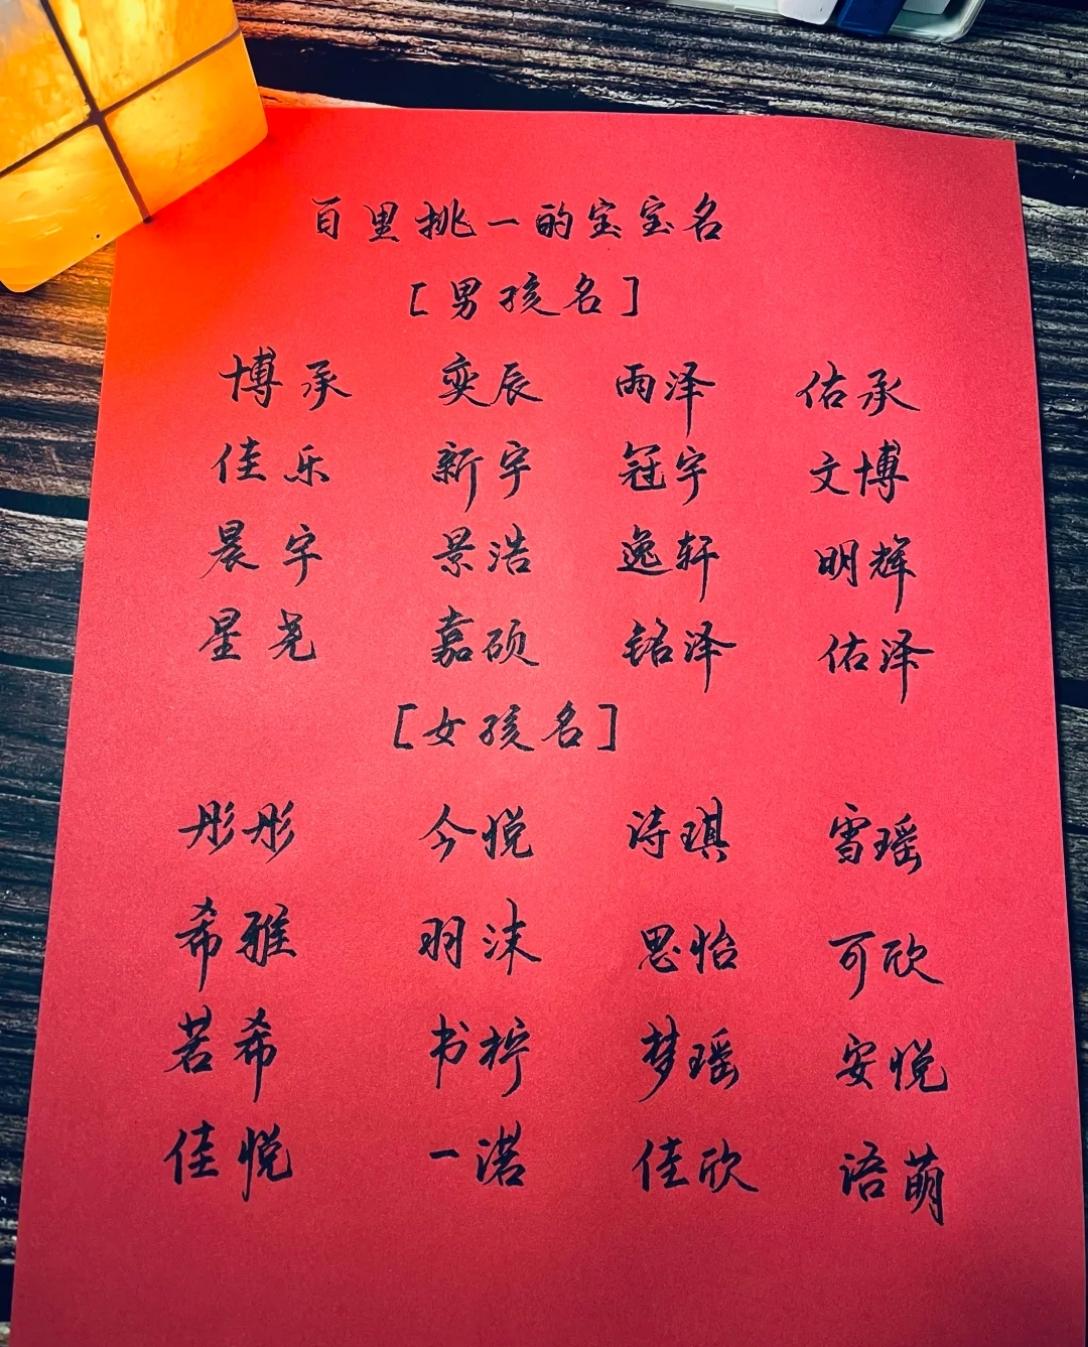 百里挑一的宝宝名
[男孩名]
博承 奕辰 雨泽 佑承
佳乐 新宇 冠宇 文博
晨宇 景浩 逸轩 明辉
星尧 嘉硕 铭泽 佑泽
[女孩名]
彤彤 今悦 诗琪 雪瑶
希雅 羽沫 思怡 可欣
若希 书柠 梦瑶 安悦
佳悦 一诺 佳欣 语萌